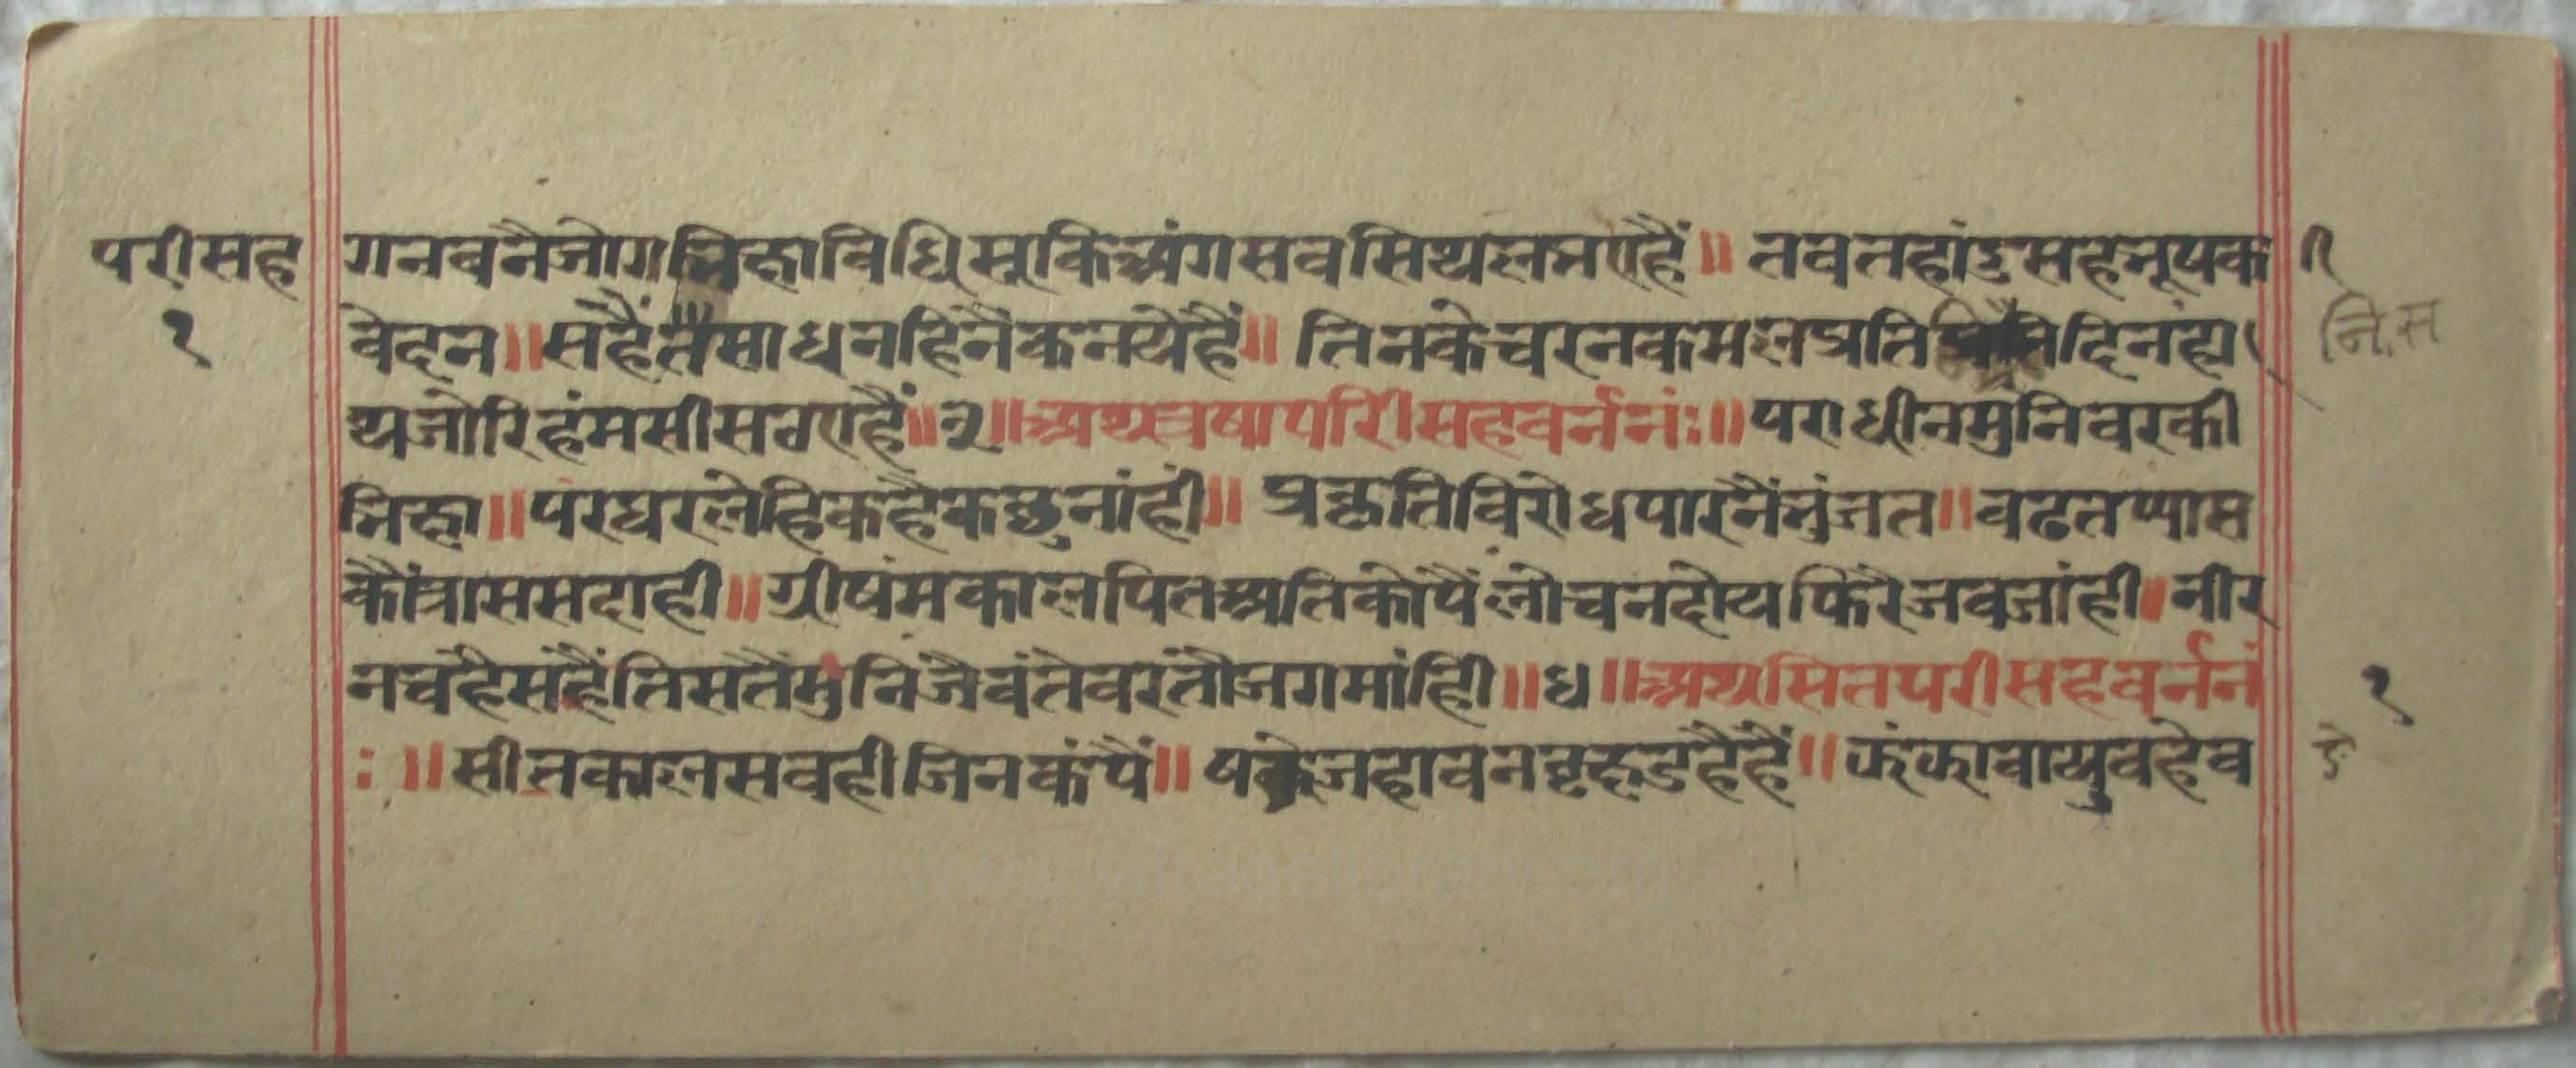 परीसह गनवनैजोगभिक्षाविधिसूकिअंगसवसिथलभएहैं॥ तवतहांदुसहभूषक
१ वेदन॥सहैंतैसाधनहिनैकनयेहैं॥ तिनकेचरनकमलप्रतिदिनंहा नि.स
थजोरिहंमसीसनएहैं॥२॥अथत्रषापरिसहवर्ननंः॥पराधीनमुनिवरकी
भिक्षा॥परघरलेहिकहैकछुनांहीं॥ प्रकृतिविरोधपारनैंभुंजत॥वढतप्यास
कौंत्राससदाही॥ग्रीषंमकालपितअतिकोपैंलोचनदोयफिरैजवजांही॥नीर
नवहैसहैंतिसतैंमुनिजैवंतेवरंतौजगमांहि॥ध॥अथसितपरीसहवर्ननं १
ः॥सीतकालसवहीजिनकंपैं॥ षडेजहावनव्रक्षडहैहैं॥झंझावायुवहैव